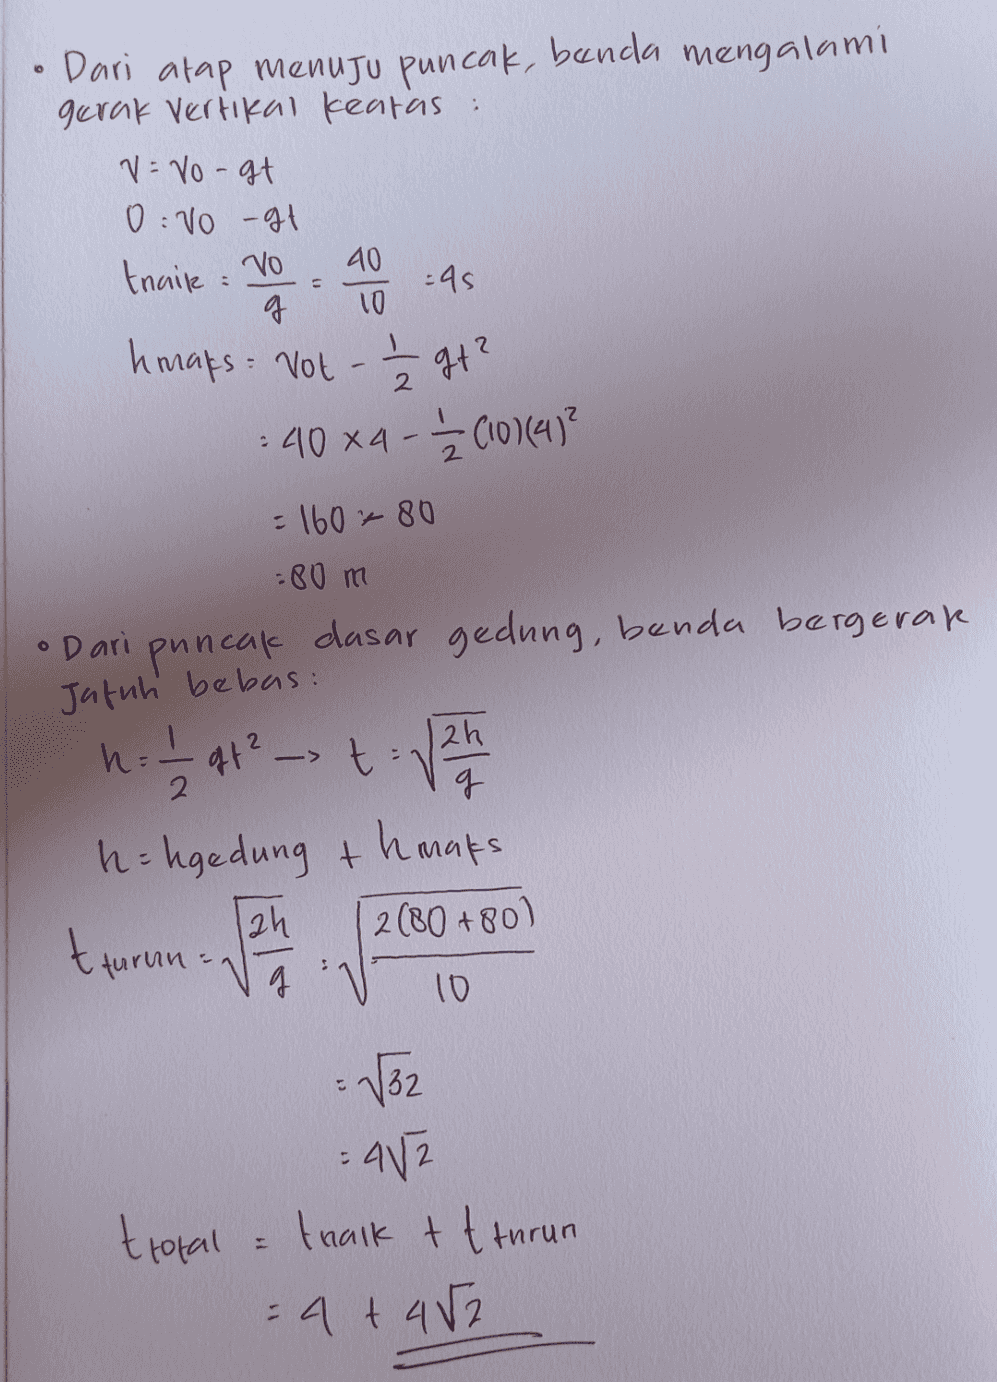 • Dari atap menuju puncak, benda mengalami
gerak vertikal keatas :
V = Vo - gt
0 = Vo - gt
tnaik = Vo/g = 40/10 = 4s
hmaks = Vot - 1/2 gt²
= 40 x 4 - 1/2 (10)(4)²
= 160 - 80
= 80 m
• Dari puncak dasar gedung, benda bergerak
Jatuh bebas :
h = 1/2 gt² -> t = √(2h/g)
h = hgedung + hmaks
t turun = √(2h/g) = √(2(80+80)/10)
= √32
= 4√2
t total = tnaik + t turun
= 4 + 4√2